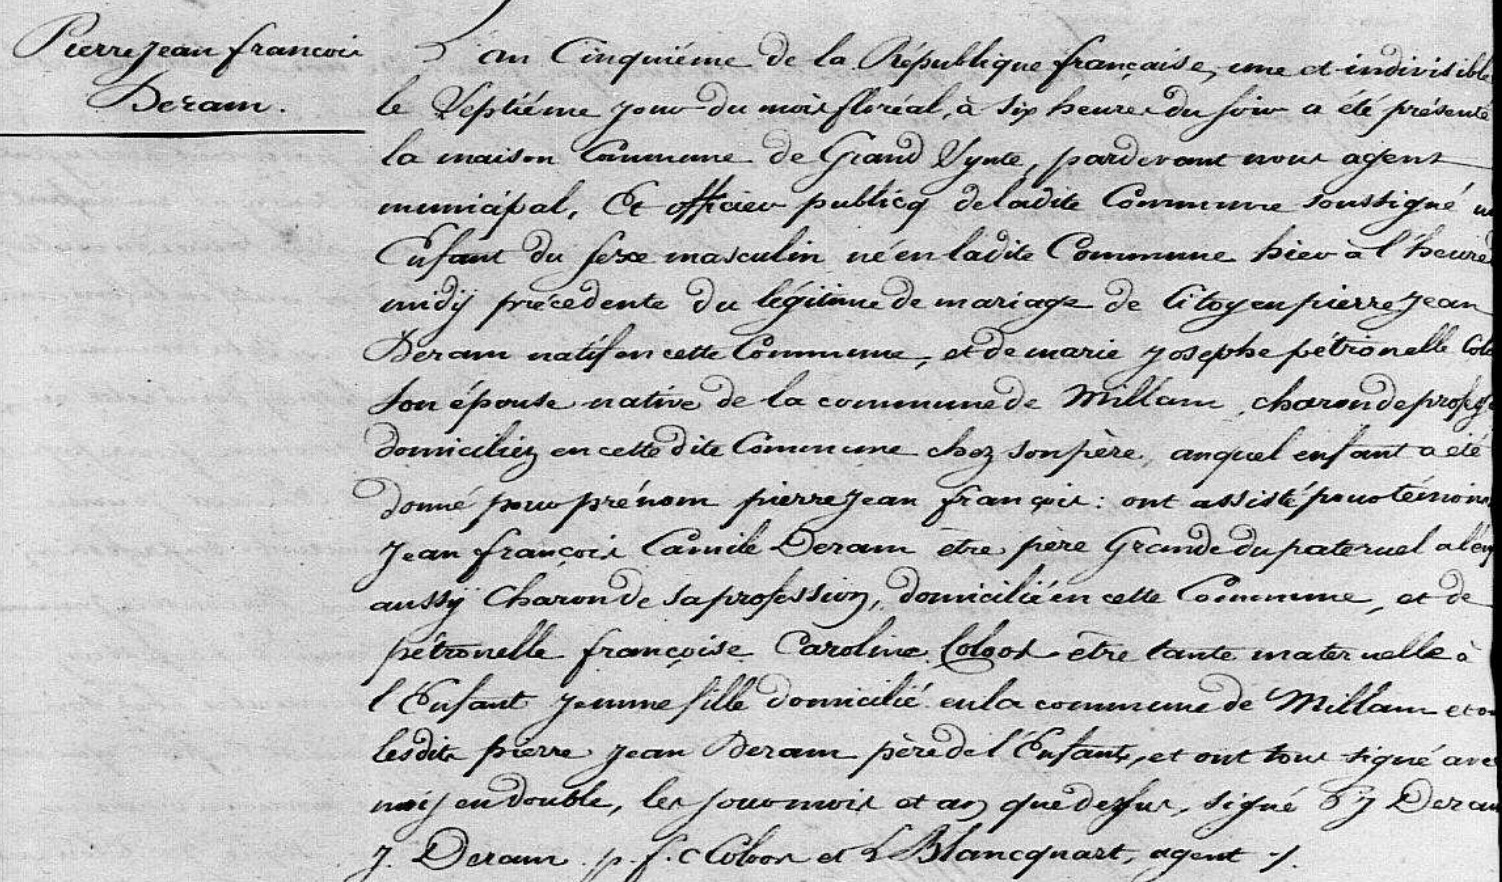 Pierre Jean francois
Deram.
an Cinquiéme de la République française, une et indivisible
le Septiéme jour du mois floréal, à six heures du soir a été présenté
la maison Commune de Grand Synte, pardevant nous agent
municipal, Et officier publicq deladite Commune soussigné un
Enfant du sexe masculin né en ladite Commune hier à l'heure
midij précedente du légitime de mariage de Citoyen pierre Jean
Deram natif en cette Commune, et de marie josephe pétronelle Colo
son épouse native de la commune de Millam, charon de profess
domiciliez en cette dite Commune chez son père, auquel enfant a été
donné pour prénom pierre Jean françois : ont assisté pour témoins
Jean françois Camile Deram être père Grande du paternel a l'en
aussÿ Charon de sa profession, domicilié en cette Commune, et de
pétronelle françoise Caroline Coloos être tante maternelle à
l'Enfant jemme fille domicilié en la commune de Millam et ou
lesdits pierre jean Deram père de l'Enfant, et ont tous signé avec
moij en double, les jour mois et an que dessus, signé P J Deram
J. Deram . p. f. C Coloos et L Blancquart, agent ./.